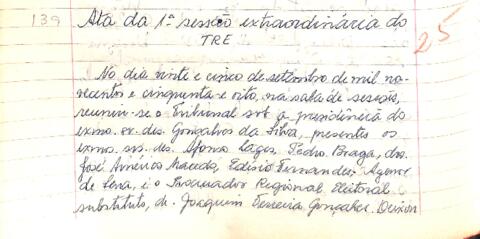 139
Ata da 1ª sessão extraordinária do
TRE
25
No dia vinte e cinco de setembro de mil no-
vecentos e cinquenta e oito, na sala de sessões,
reuniu-se o Tribunal sob a presidência do
exmo. sr. des. Gonçalves da Silva, presentes os
exmos. srs. des. Afonso Lages, Pedro Braga, drs.
José Américo Macedo, Edísio Fernandes, Agenor
de Sena, e o Procurador Regional Eleitoral
substituto, dr. Joaquim Ferreira Gonçalves. Deixou